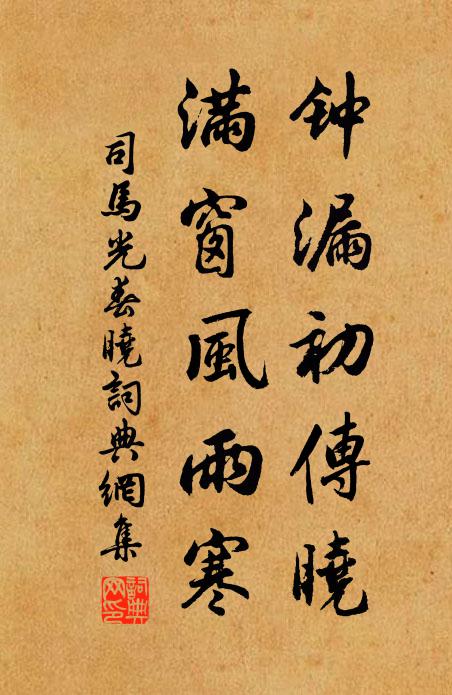 钟漏初傳曉
滿窗風雨寒
司馬光春曉詞典網集
詞典网印